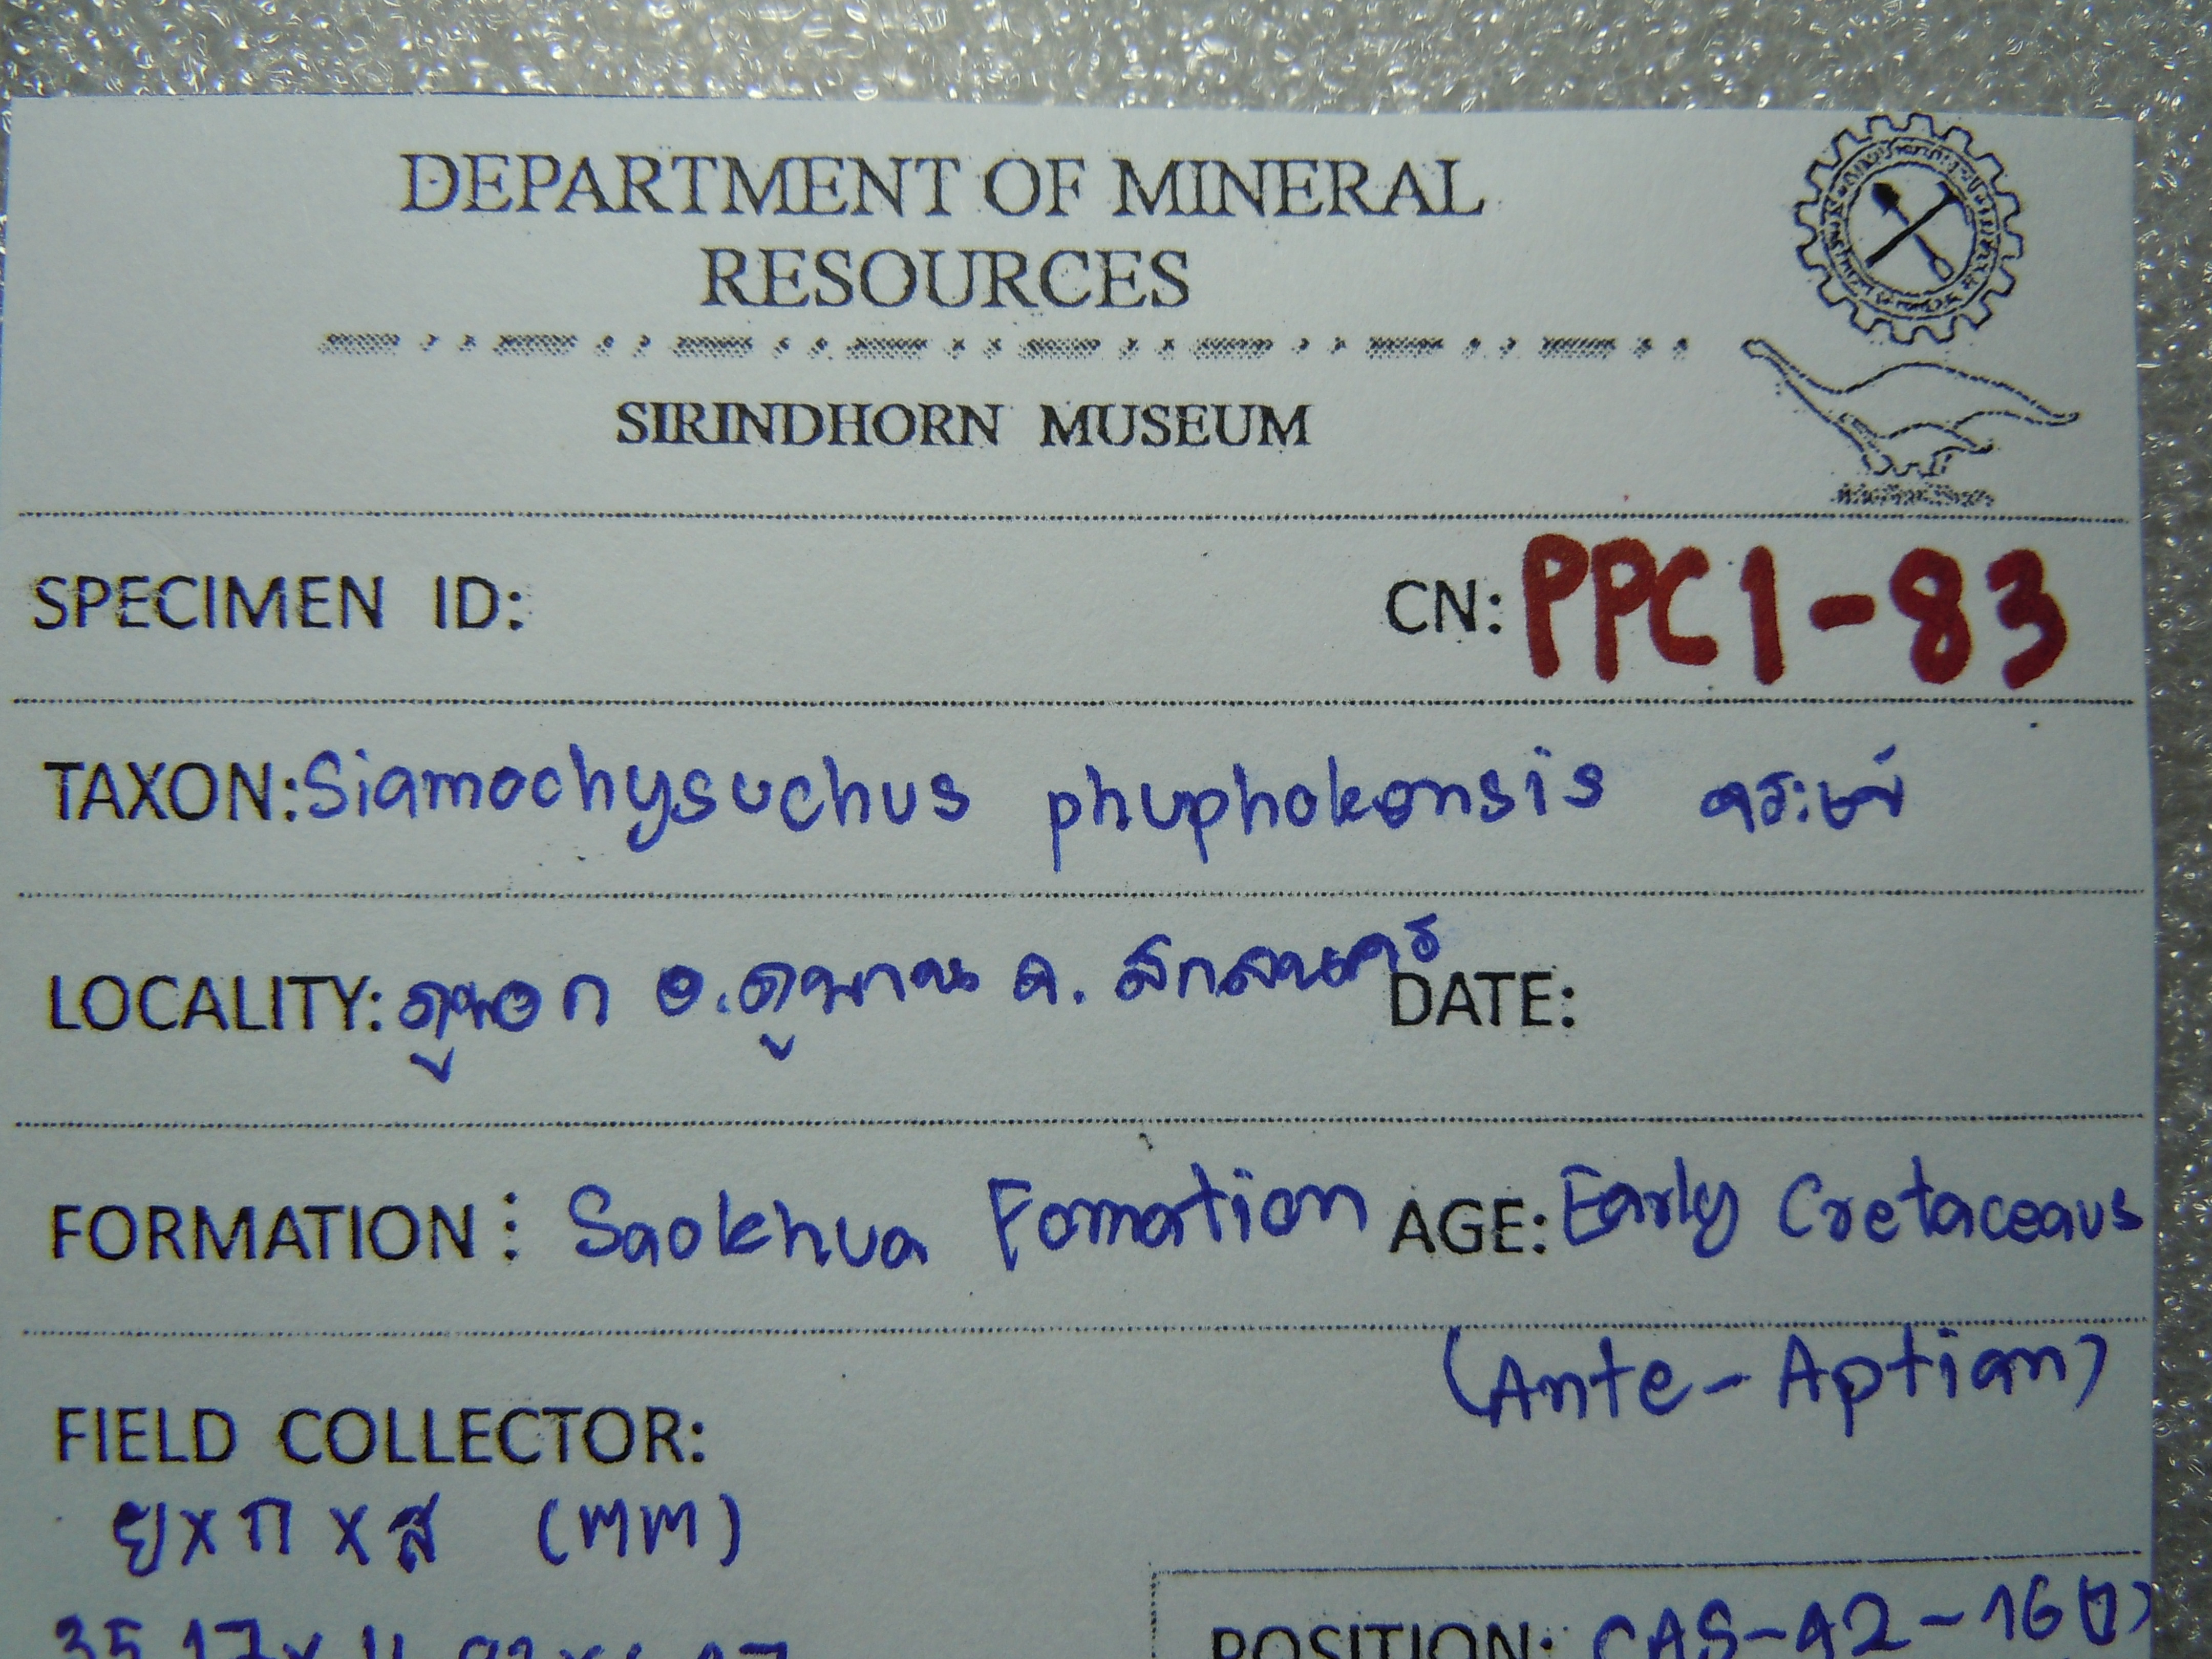 DEPARTMENT OF MINERAL
RESOURCES
SIRINDHORN MUSEUM
SPECIMEN ID: CN: PPC1-83
TAXON: Siamochysuchus phuphokensis
LOCALITY: ภูพอก อ.ภูพาน จ. สกลนคร DATE:
FORMATION: Saokhua Fomation AGE: Early Cretaceaus
(Ante-Aptian)
FIELD COLLECTOR:
ย x ก x ส (mm)
POSITION: